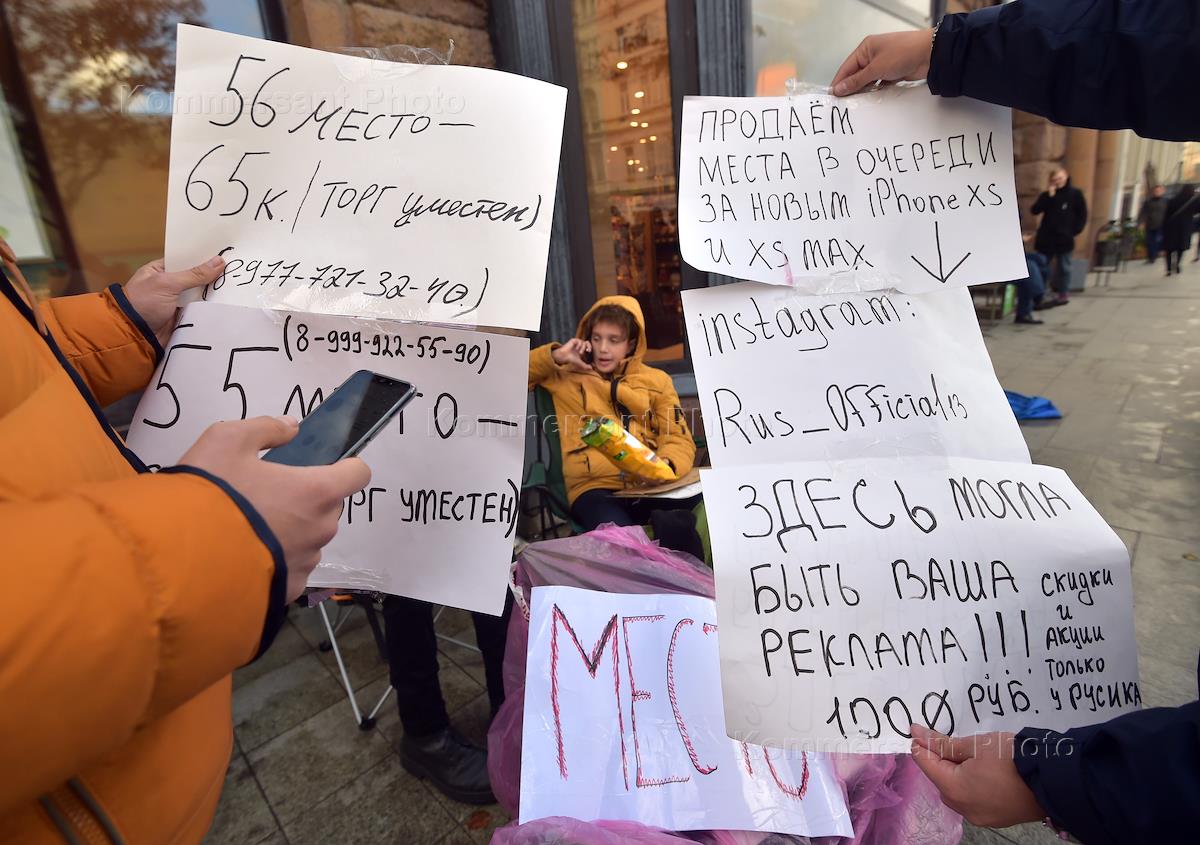 56 МЕСТО —
65к. / ТОРГ уместен)
(8-977-721-32-40.)
(8-999-922-55-90)
55
ТОРГ УМЕСТЕН)
ПРОДАЁМ
МЕСТА В ОЧЕРЕДИ
ЗА НОВЫМ iPhone XS
И XS MAX
instagram:
Rus_Official13
ЗДЕСЬ МОГЛА
БЫТЬ ВАША
РЕКЛАМА!!!
1000 РУБ.
СКИДКИ
И
АКЦИИ
ТОЛЬКО
У РУСИКА
МЕСТО
Kommersant Photo
Kommersant Photo
Kommersant Photo
Kommersant Photo